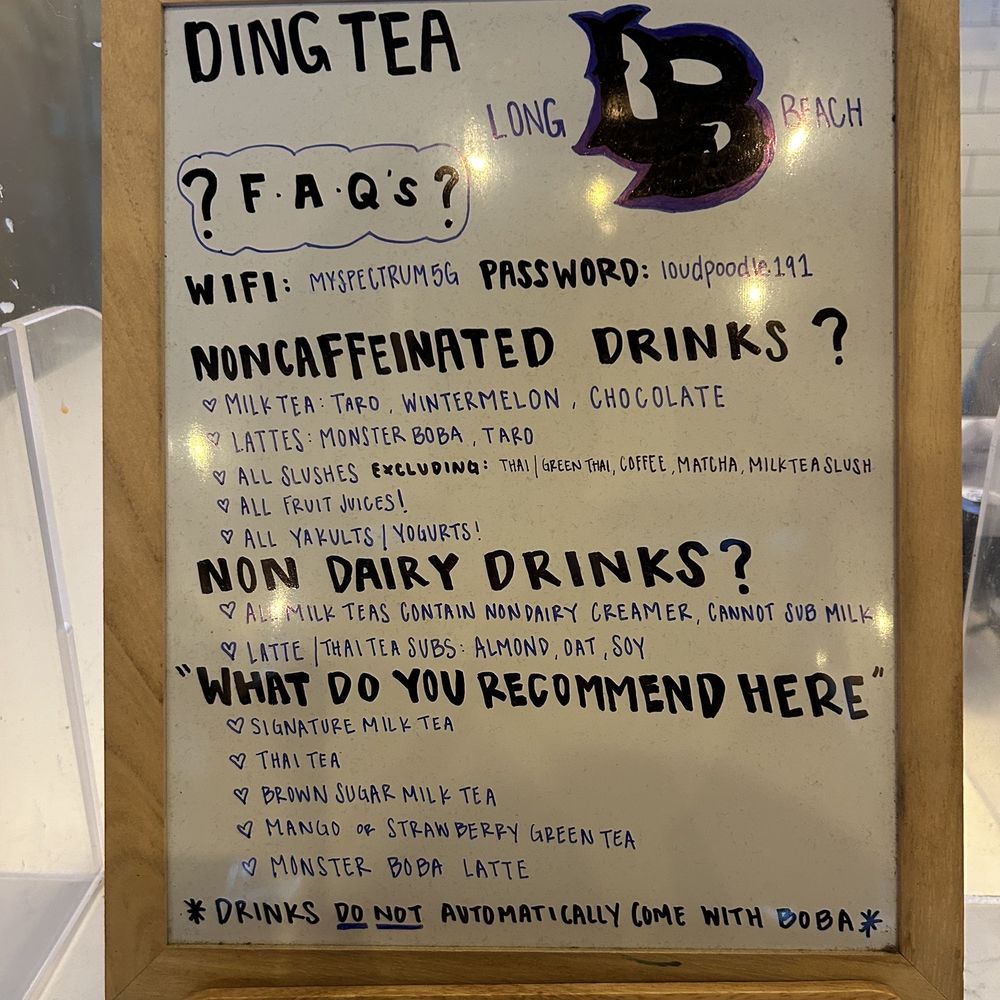 DING TEA
LONG LB BEACH
? F.A.Q'S ?
WIFI: MYSPECTRUM5G PASSWORD: loudpoodle191
NONCAFFEINATED DRINKS ?
♡ MILK TEA: TARO, WINTERMELON, CHOCOLATE
♡ LATTES: MONSTER BOBA, TARO
♡ ALL SLUSHES EXCLUDING: THAI/GREEN THAI, COFFEE, MATCHA, MILK TEA SLUSH
♡ ALL FRUIT JUICES!
♡ ALL YAKULTS/YOGURTS!
NON DAIRY DRINKS?
♡ ALL MILK TEAS CONTAIN NONDAIRY CREAMER, CANNOT SUB MILK
♡ LATTE/THAI TEA SUBS: ALMOND, OAT, SOY
"WHAT DO YOU RECOMMEND HERE"
♡ SIGNATURE MILK TEA
♡ THAI TEA
♡ BROWN SUGAR MILK TEA
♡ MANGO OR STRAWBERRY GREEN TEA
♡ MONSTER BOBA LATTE
* DRINKS DO NOT AUTOMATICALLY COME WITH BOBA *